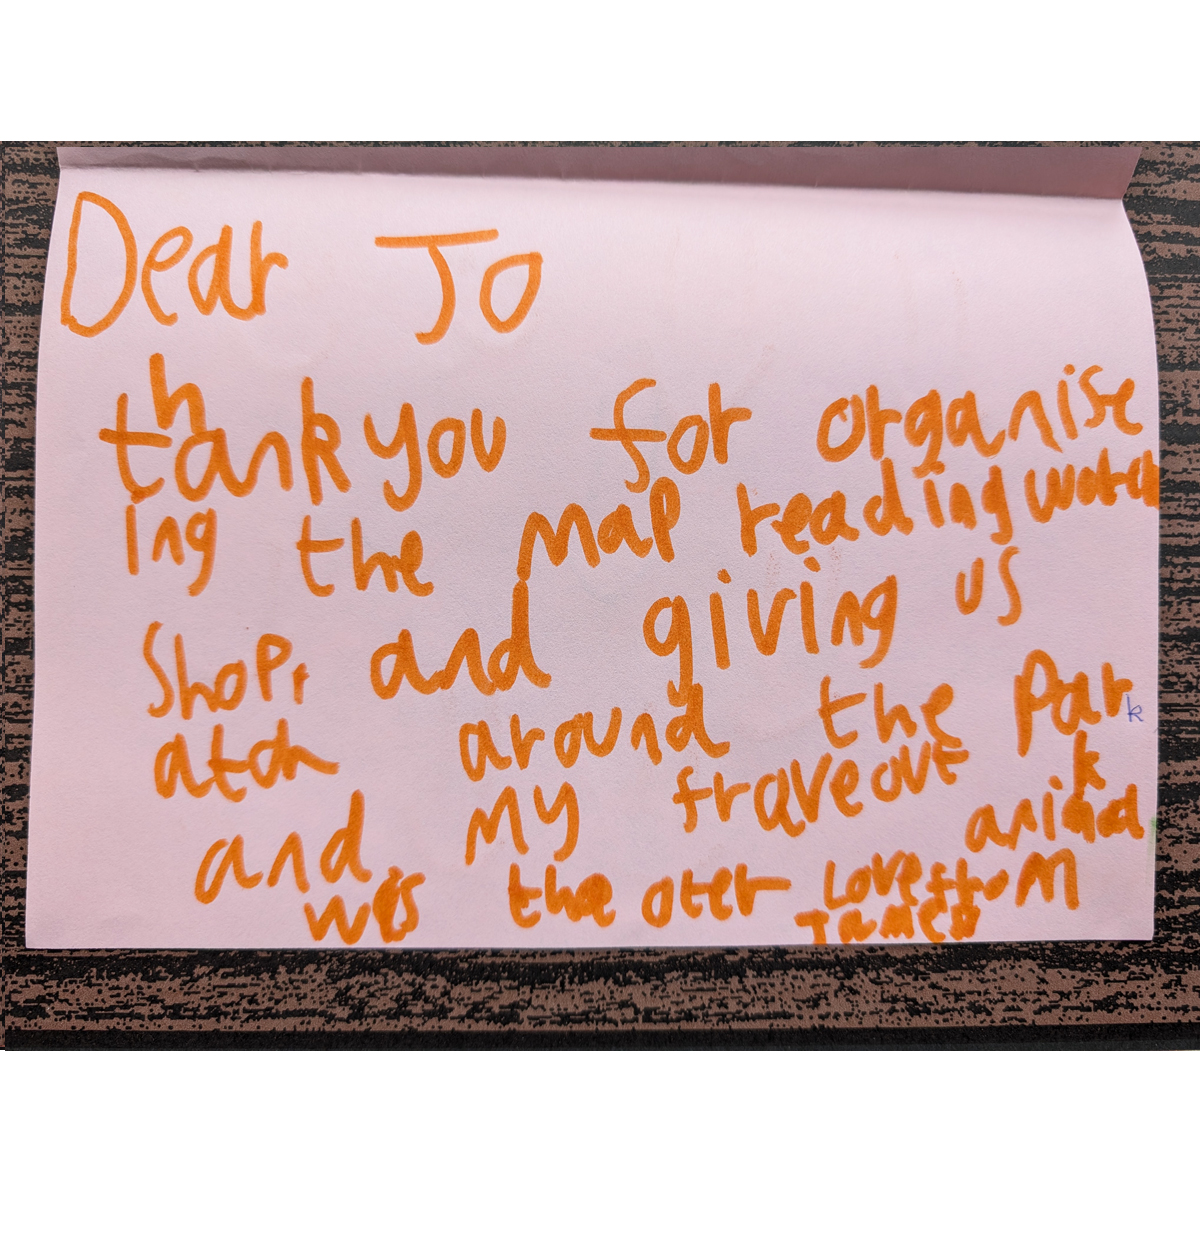 Dear Jo
thankyou for organise
ing the map reading worck
shop, and giving us
ator around the park
k
and my fraveove animal
wes the oter Love from
James